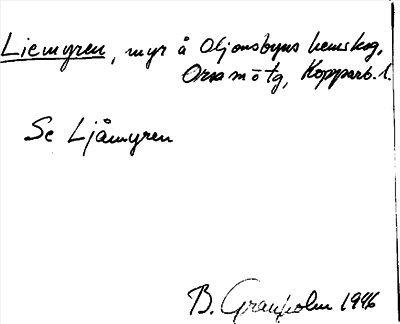 Liemyren, myr å Oljonsbyns hemskog,
Orsa m o tg, Kopparb. l.
Se Ljåmyren
B. Granholm 1946